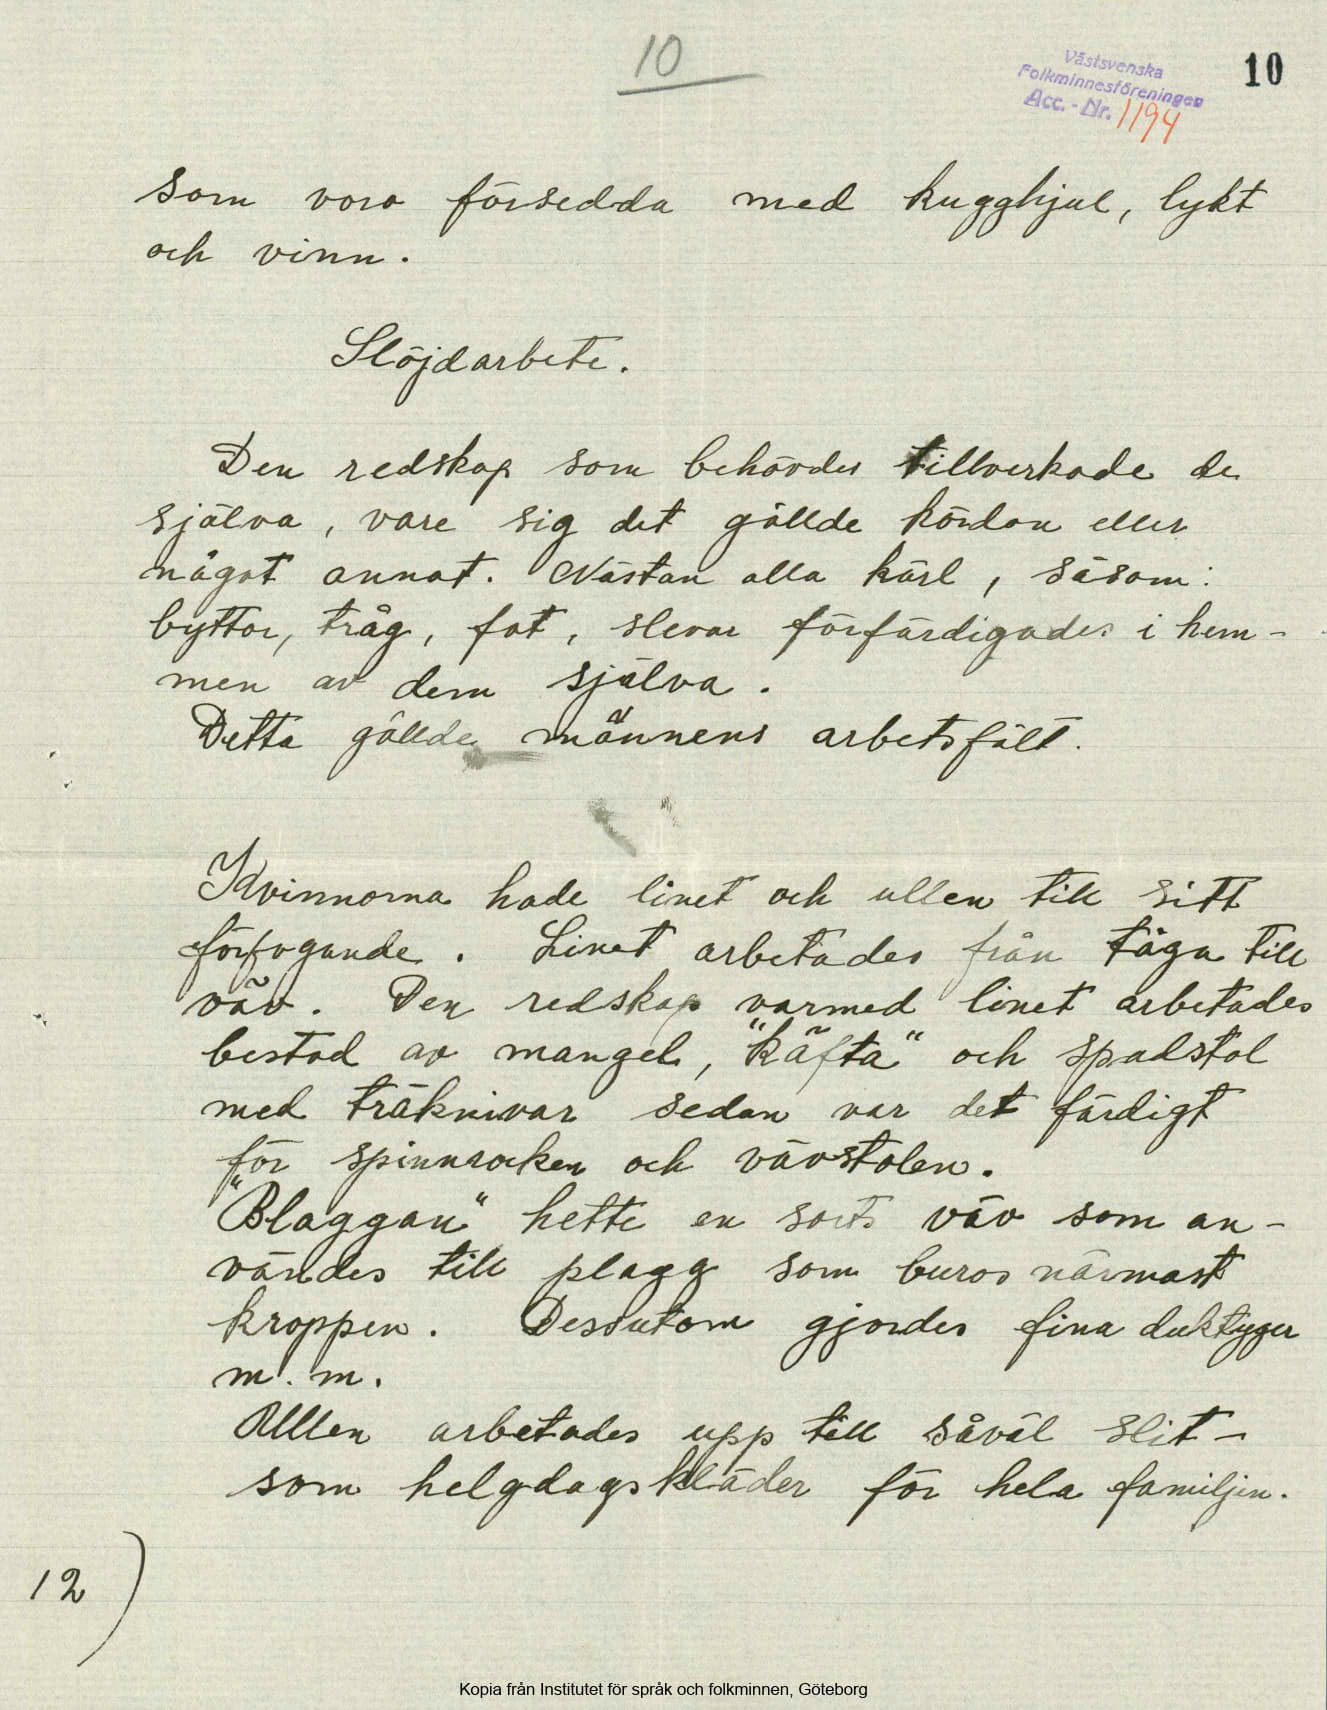 10
10
Västsvenska
Folkminnesföreningen
Acc.-Nr. 1194
som voro försedda med kugghjul, lykt
och vinn.
Slöjdarbete.
Den redskap som behövdes tillverkade de
själva, vare sig det gällde kördon eller
något annat. Nästan alla kärl, såsom:
byttor, tråg, fat, slevar förfärdigades i hem-
men av dem själva.
Detta gällde männens arbetsfält.
Kvinnorna hade linet och ullen till sitt
förfogande. Linet arbetades från tåga till
väv. Den redskap varmed linet arbetades
bestod av mangel, "käfta" och spadstol
med träknivar sedan var det färdigt
för spinnrocken och vävstolen.
"Blaggan" hette en sorts väv som an-
vändes till plagg som buros närmast
kroppen. Dessutom gjordes fina duktyger
m.m.
Ullen arbetades upp till såväl slit-
som helgdagskläder för hela familjen.
12)
Kopia från Institutet för språk och folkminnen, Göteborg